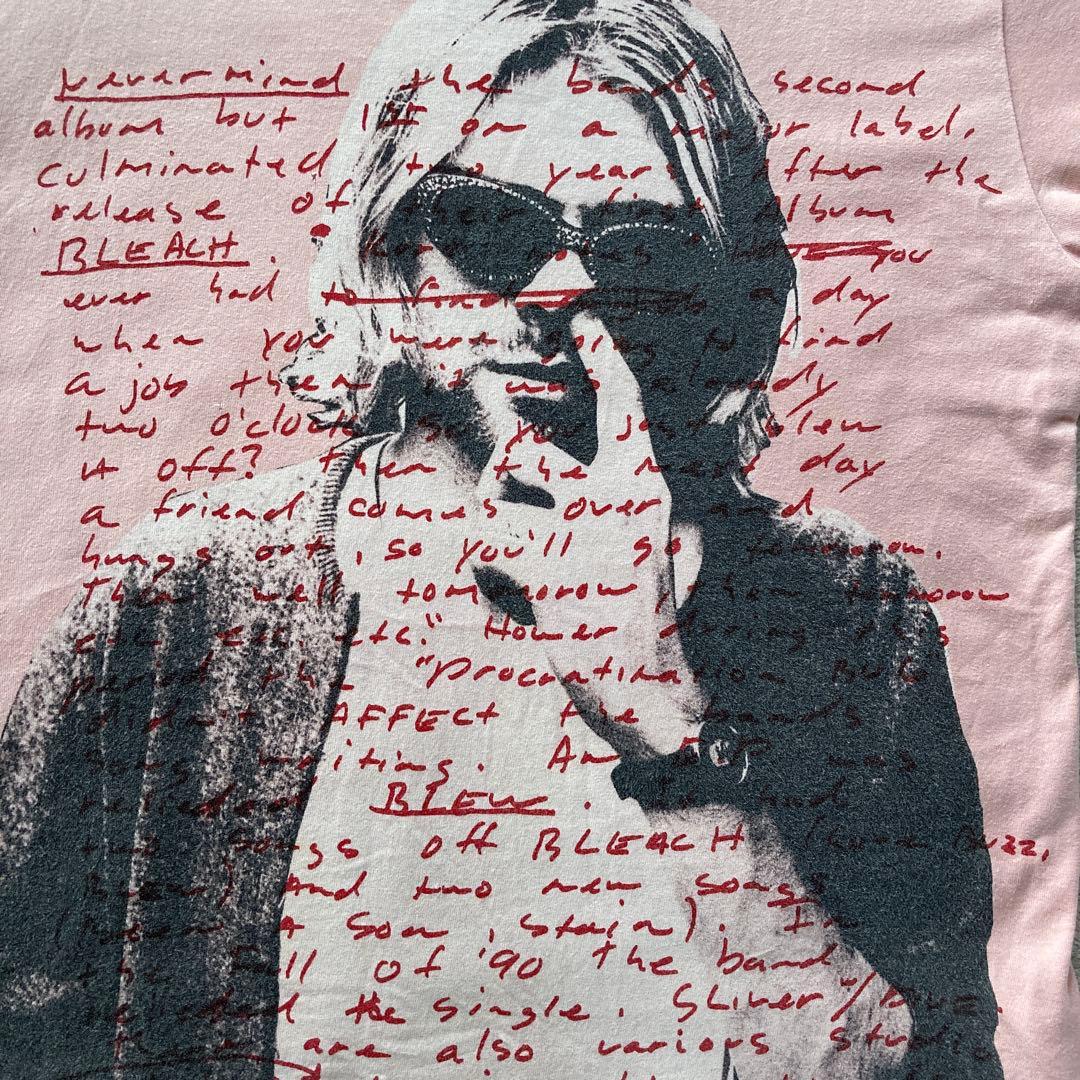 Nevermind the bands second
album but 1ST on a major label,
culminated two years after the
release of their first album
BLEACH. you
ever had to find a day
when you were going to find
a job then it was already
two o'clock so you just blew
it off? then the next day
a friend comes over and
hungs out, so you'll go tomorrow.
Then well tomorrow, then tomorrow
etc etc." Homer during this
period the "Procrastination BUG
didn't AFFECT the bands
song writing. An E.P. was
BLEW. It had
two songs off BLEACH (Love Buzz,
Blew) And two new songs
(Been A Son, Stain). In
the Fall of '90 the band
the single. SLiver"/DIVE.
are also various studio